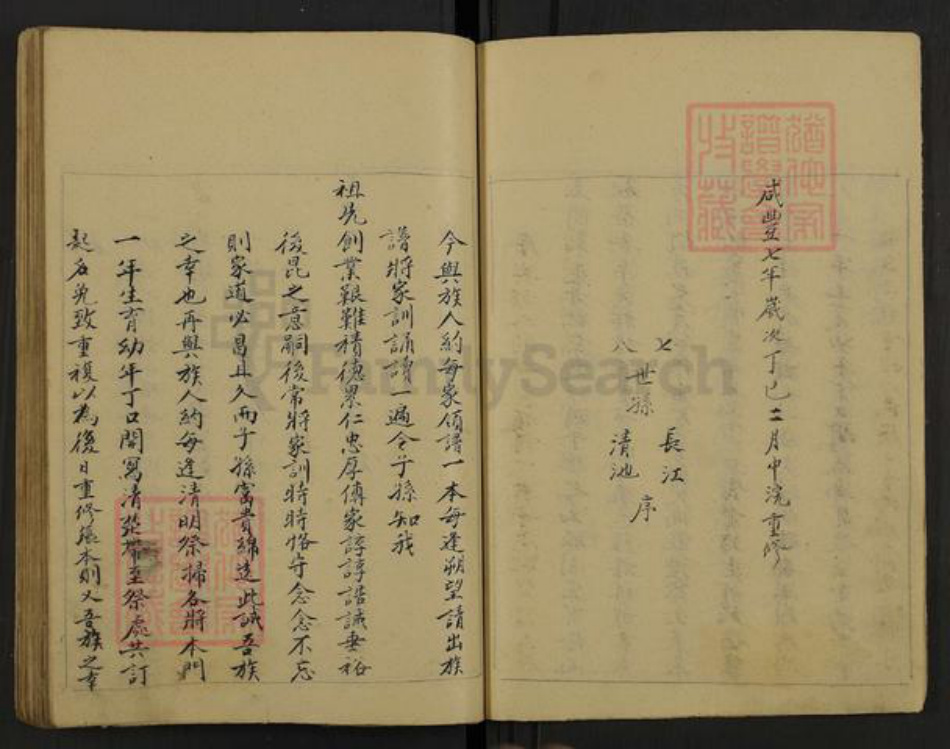 咸豐七年歲次丁巳二月中浣重修
七 長江
世孫 序
八 清池
今與族人約每家領譜一本每逢朔望請出族
譜將家訓誦讀一遍令子孫知我
祖先創業艱難積德累仁忠厚傳家諄諄誥誡垂裕
後昆之意嗣後常將家訓時時恪守念念不忘
則家道必昌且久而子孫富貴綿遠此誠吾族
之幸也再與族人約每逢清明祭掃各將本門
一年生育幼年丁口開寫清楚帶至祭處共訂
起名免致重複以為後日重修張本則又吾族之幸
FamilySearch